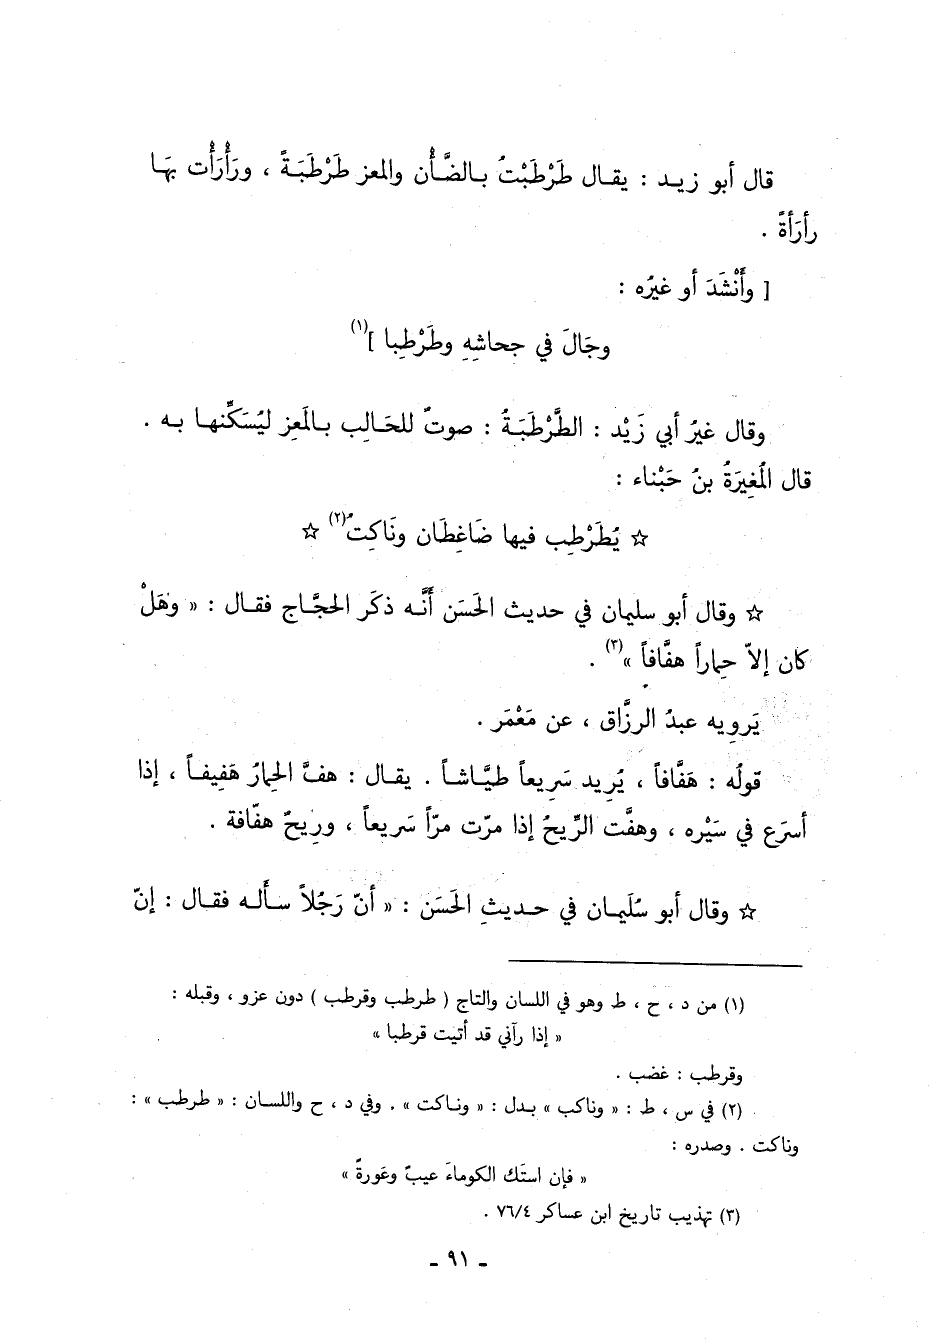 قال أبو زيـد : يقـال طَرْطَبْتُ بـالضَّأْن والمعز طَرْطَبَةً ، ورَأْرَأْت بهَـا
رأرَأةً .
[ وأَنْشَدَ أو غيرُه :
وجَالَ في جحاشِهِ وطَرْطِبا ](١)
وقال غيرُ أبي زَيْد : الطَّرْطَبَـةُ : صوتٌ للحَـالِب بـالمَعِز ليُسَكِّنهـا بـه .
قال المُغِيرَةُ بنُ حَبْناء :
☆ يُطَرْطِب فيها ضَاغِطَان ونَاكِتُ(٢) ☆
☆ وقال أبو سليمان في حديث الحَسَن أنَّـه ذكَر الحجَّـاج فقـال : « وهَلْ
كان إلاّ حِماراً هفَّافاً »(٣) .
يَرويه عبدُ الرزَّاق ، عن مَعْمَر .
قولُه : هَفَّافاً ، يُرِيد سَرِيعاً طيَّاشـاً . يقـال : هفَّ الحِمارُ هَفِيفـاً ، إذا
أسرَع في سَيْره ، وهفَّت الرِّيحُ إذا مرّت مرّاً سَريعاً ، ورِيحٌ هفّافة .
☆ وقال أبو سُلَيمـان في حـديثِ الحَسَن : « أنّ رَجُلاً سـألـه فقـال : إنّ
(١) من د ، ح ، ط وهو في اللسان والتاج ( طرطب وقرطب ) دون عزو ، وقبله :
« إذا رآني قد أتيت قرطبا »
وقرطب : غضب .
(٢) في س ، ط : « وناكب » بـدل : « ونـاكت » . وفي د ، ح واللسـان : « طرطب » :
وناكت . وصدره :
« فإن استَك الكوماءَ عيبٌ وعَورةٌ »
(٣) تهذيب تاريخ ابن عساكر ٧٦/٤ .
- ٩١ -